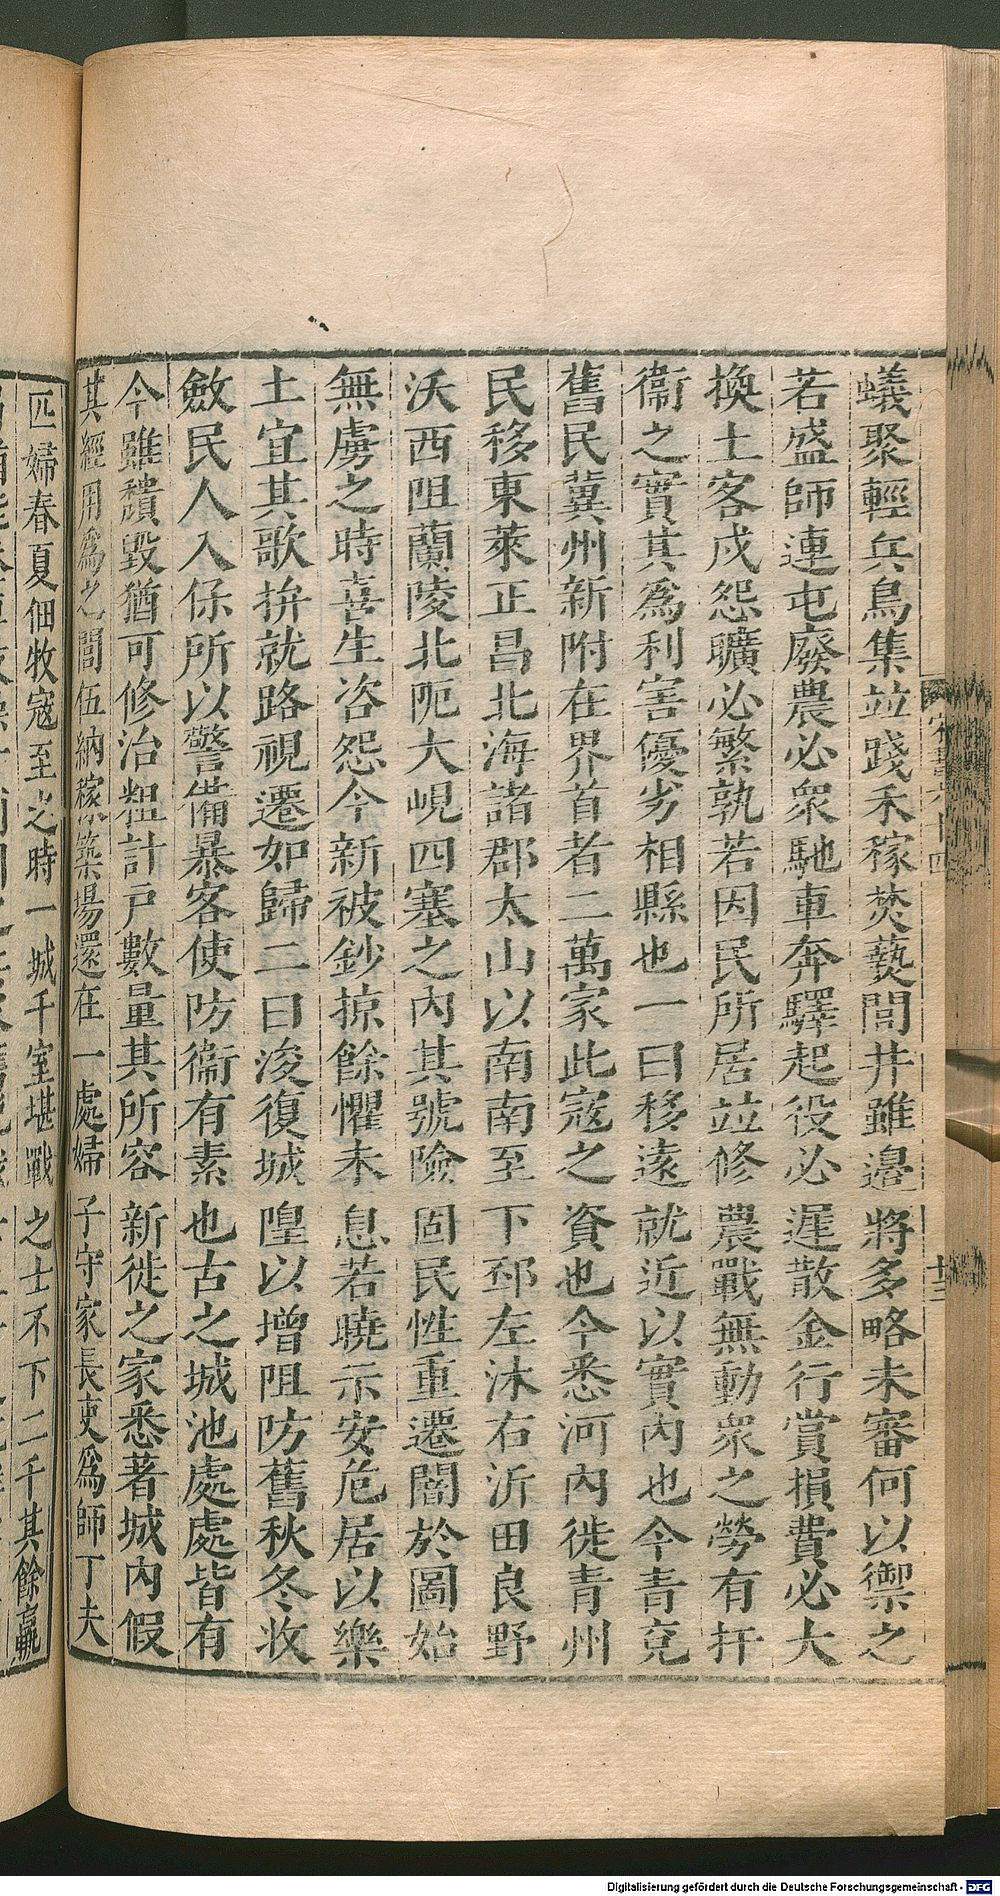 蟻聚輕兵鳥集竝踐禾稼焚爇閭井雖邊將多略未審何以禦之
若盛師連屯廢農必衆馳車奔驛起役必遲散金行賞損費必大
換土客戍怨曠必繁孰若因民所居竝修農戰無動衆之勞有扞
衞之實其爲利害優劣相縣也一曰移遠就近以實內也今青兗
舊民冀州新附在界首者二萬家此寇之資也今悉河內徙青州
民移東萊正昌北海諸郡太山以南南至下邳左沭右沂田良野
沃西阻蘭陵北阨大峴四塞之內其號險固民性重遷闇於圖始
無虜之時喜生咨怨今新被鈔掠餘懼未息若曉示安危居以樂
土宜其歌抃就路視遷如歸二曰浚復城隍以增阻防舊秋冬收
斂民人入保所以警備暴客使防衞有素也古之城池處處皆有
今雖穨毀猶可修治粗計戶數量其所容新徙之家悉著城內假
其經用爲之閭伍納稼築場還在一處婦子守家長吏爲師丁夫
匹婦春夏佃牧寇至之時一城千室堪戰之士不下二千其餘羸
十三
Digitalisierung gefördert durch die Deutsche Forschungsgemeinschaft - DFG